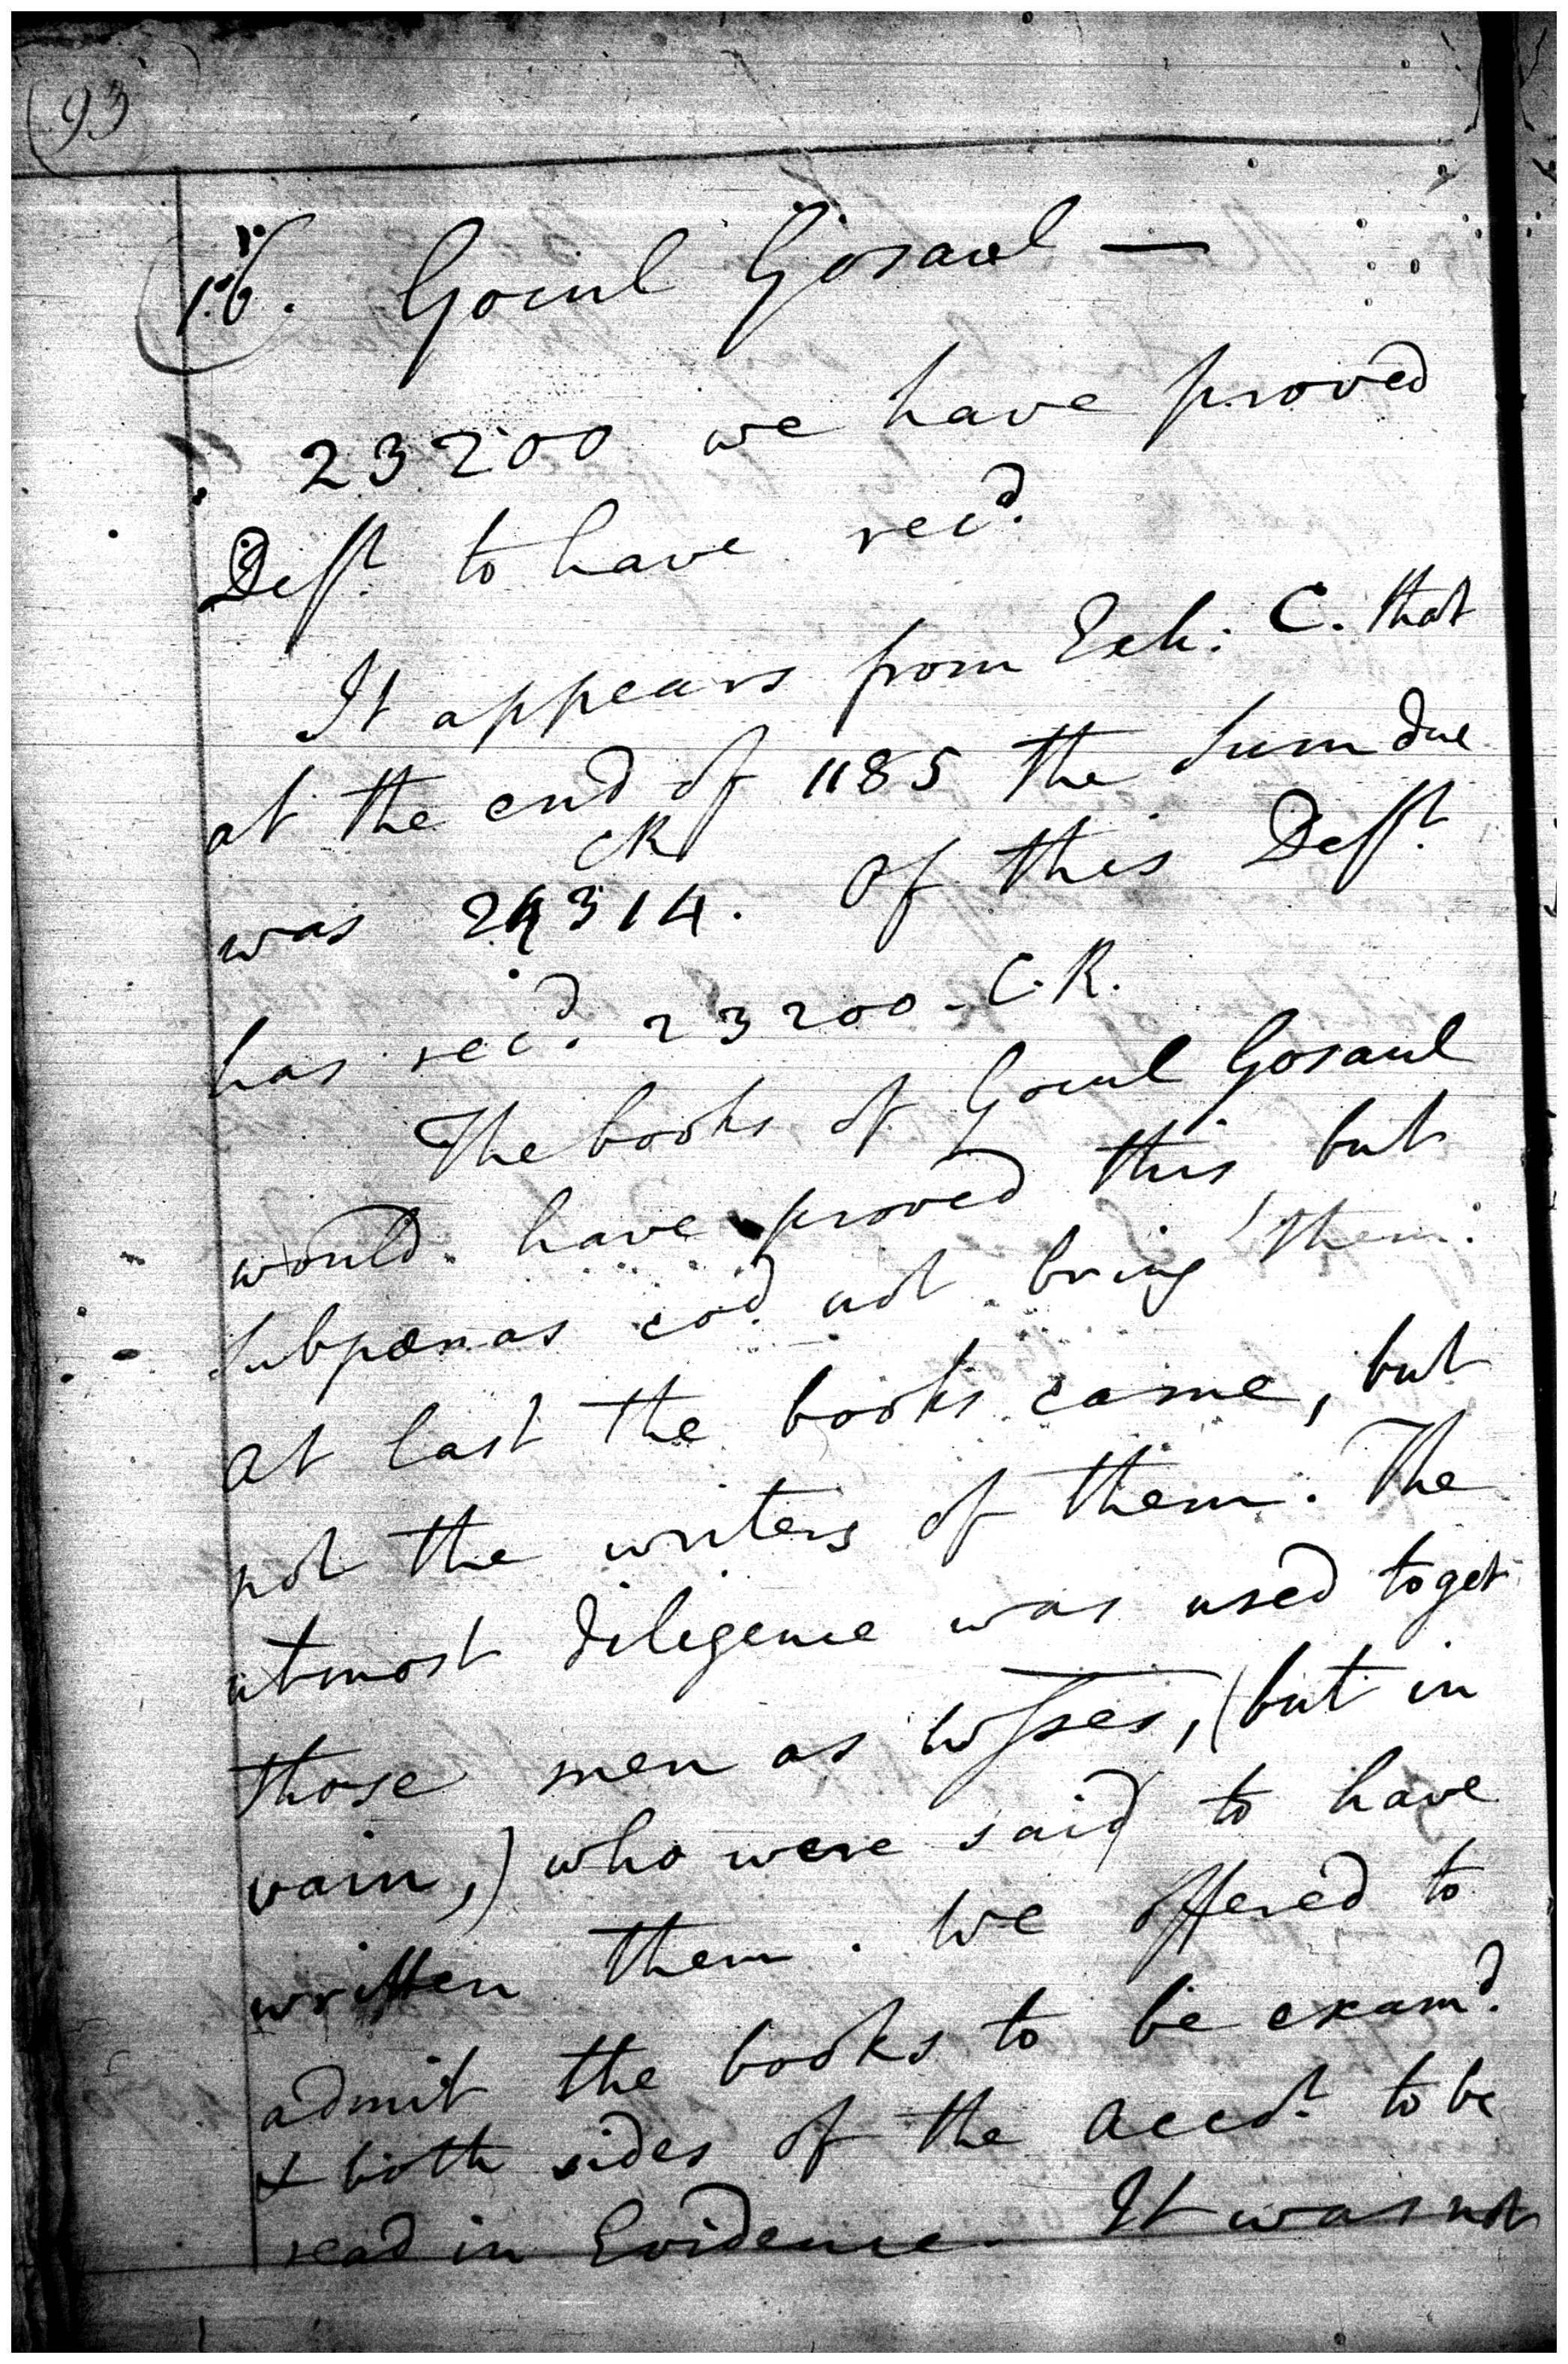 93
16. Gocul Gosaul —
23200 we have proved
Deft. to have recd.
It appears from Exh: C. that
at the end of 1185 the sum due
CR
was 24314. Of this Deft.
has recd. 23200 - C.R.
The books of Gocul Gosaul
would have proved this, but
subpœnas cod. not bring them.
At last the books came, but
not the writers of them. The
utmost diligence was used to get
those men as wsses, (but in
vain,) who were said to have
written them. We offered to
admit the books to be examd.
& both sides of the Acct. to be
read in Evidence. It was not